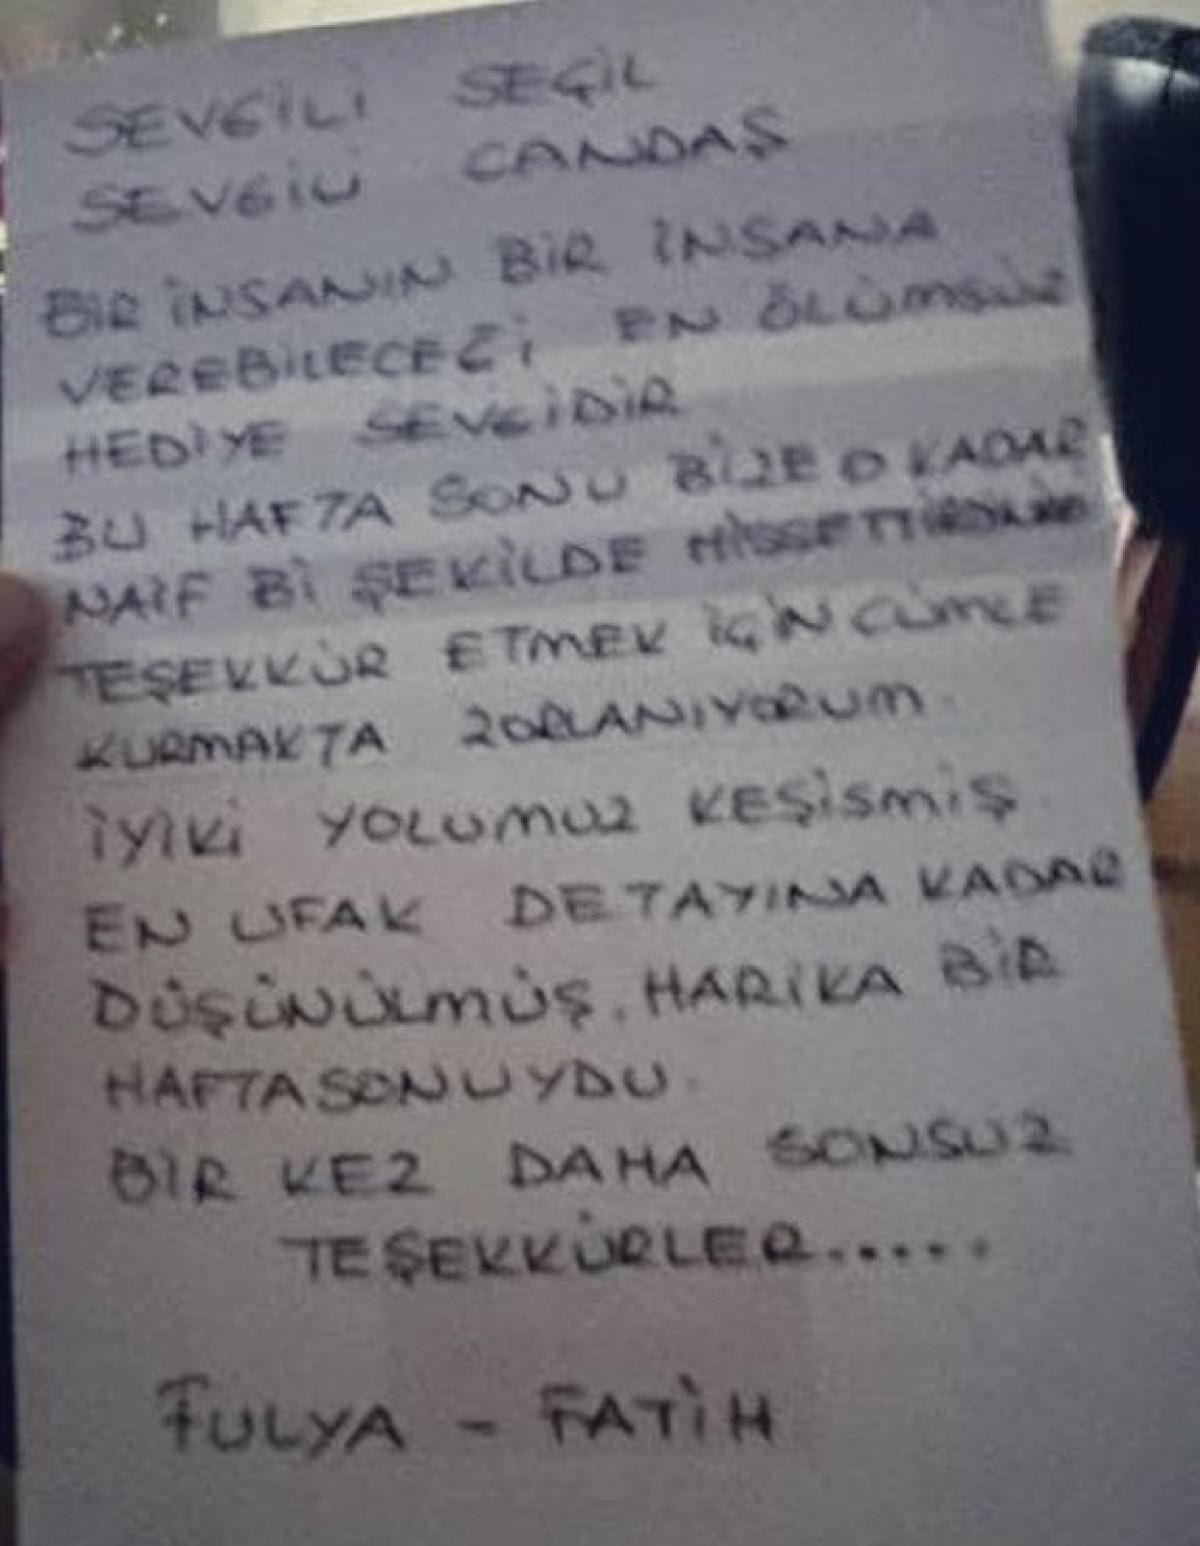 SEVGİLİ SEÇİL
SEVGİLİ CANDAŞ
BİR İNSANIN BİR İNSANA
VEREBİLECEĞİ EN ÖLÜMSÜZ
HEDİYE SEVGİDİR
BU HAFTA SONU BİZE O KADAR
NAİF Bİ ŞEKİLDE HİSSETTİRDİNİZ
TEŞEKKÜR ETMEK İÇİN CÜMLE
KURMAKTA ZORLANIYORUM.
İYİKİ YOLUMUZ KEŞİSMİŞ.
EN UFAK DETAYINA KADAR
DÜŞÜNÜLMÜŞ. HARİKA BİR
HAFTASONUYDU.
BİR KEZ DAHA SONSUZ
TEŞEKKÜRLER.....
FULYA - FATİH